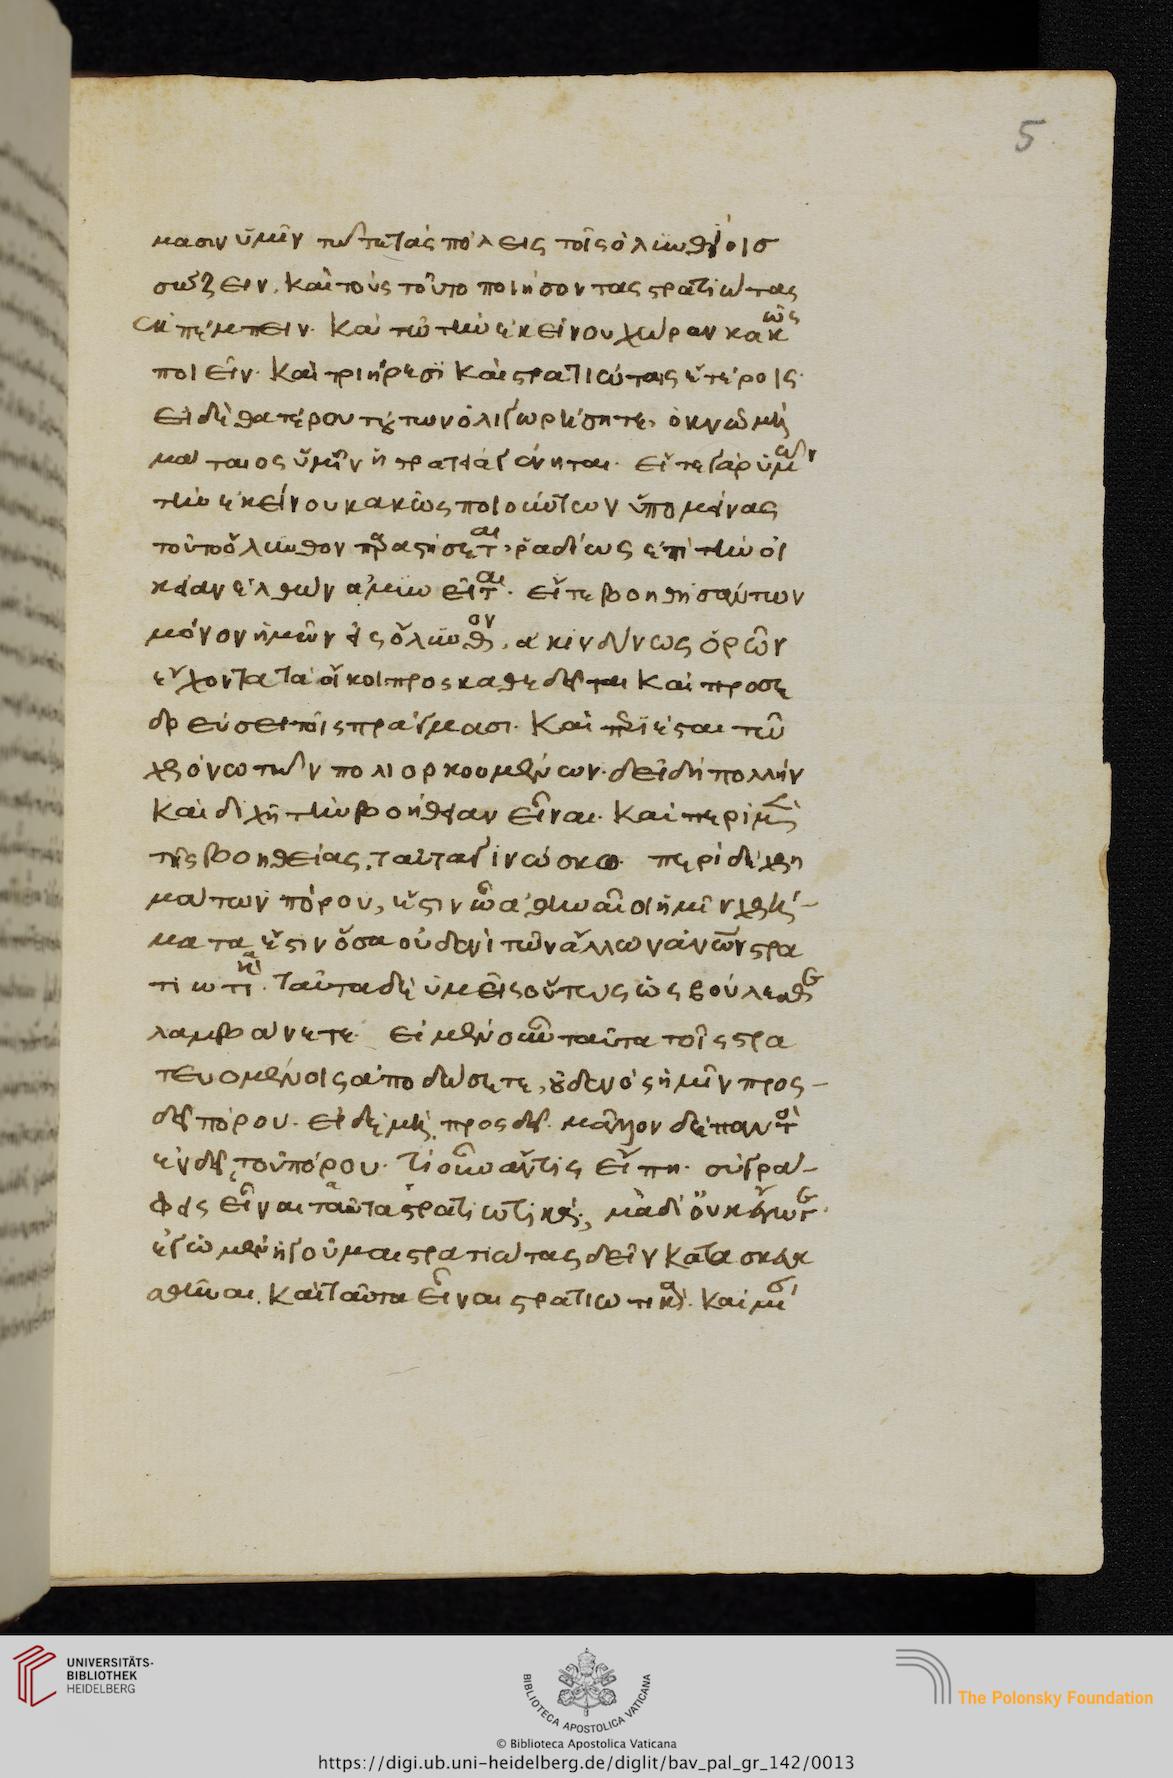 5
μασιν ὑμῖν τῷ τε τὰς πόλεις τοῖς ὀλυνθίοις
σώζειν. καὶ τοὺς τοῦτο ποιήσοντας στρατιώτας
ἐκπέμπειν. καὶ τῷ τὴν ἐκείνου χώραν κακῶς
ποιεῖν. καὶ τριήρεσι καὶ στρατιώταις ἑτέροις.
εἰ δὲ θατέρου τούτων ὀλιγωρήσητε, ὀκνῶ μὴ
μάταιος ὑμῖν ἡ στρατεία γένηται. εἴτε γὰρ ὑμῶν
τὴν ἐκείνου κακῶς ποιούντων ὑπομείνας
τοῦτο ὄλυνθον παραστήσεται, ῥαδίως ἐπὶ τὴν οἰ
κείαν ἐλθὼν ἀμυνεῖται. εἴτε βοηθησάντων
μόνον ἡμῶν εἰς ὄλυνθον, ἀκινδύνως ὁρῶν
ἔχοντα τὰ οἴκοι προσκαθεδεῖται καὶ προσε
δρεύσει τοῖς πράγμασι. καὶ περιέσται τῷ
χρόνῳ τῶν πολιορκουμένων. δεῖ δὴ πολλὴν
καὶ διχῆ τὴν βοήθειαν εἶναι. καὶ περὶ μὲν
τῆς βοηθείας, ταῦτα γινώσκω. περὶ δὲ χρη
μάτων πόρου, ἔστιν ὦ ἀθηναῖοι ἡμῖν χρή-
ματα ἔστιν ὅσα οὐδενὶ τῶν ἄλλων ἀνθρώπων στρα
τιωτικά. ταῦτα δὲ ὑμεῖς οὕτως ὡς βούλεσθε
λαμβάνετε. εἰ μὲν οὖν ταῦτα τοῖς στρα
τευομένοις ἀποδώσετε, οὐδενὸς ἡμῖν προσ-
δεῖ πόρου. εἰ δὲ μή, προσδεῖ. μᾶλλον δὲ παντὸς
ἐνδεῖ τοῦ πόρου. τί οὖν ἄν τις εἴπῃ. σὺ γρά-
φεις εἶναι ταῦτα στρατιωτικά, μὰ δί οὐκ ἔγωγε.
ἐγὼ μὲν ἡγοῦμαι στρατιώτας δεῖν κατασκευ
ασθῆναι. καὶ ταῦτα εἶναι στρατιωτικά. καὶ μίαν
UNIVERSITÄTS-
BIBLIOTHEK
HEIDELBERG
BIBLIOTECA APOSTOLICA VATICANA
The Polonsky Foundation
© Biblioteca Apostolica Vaticana
https://digi.ub.uni-heidelberg.de/diglit/bav_pal_gr_142/0013